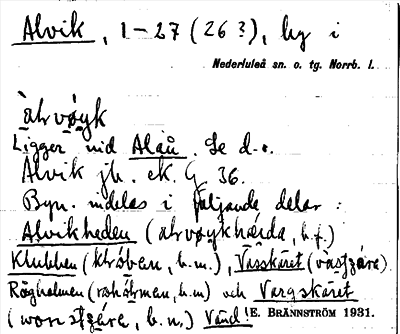 Alvik, 1-27 (26 ?), by i
Nederluleå sn. o. tg. Norrb. l.
àlvøyk
Ligger vid Alån. Se d.o.
Alvik jb. ek. G 36.
Byn indelas i följande delar :
Alvikheden (alvøykhæida, b.f.)
Klubben (klóben, b.m.), Vässkäret
Rågholmen (b.m) och Vargskäret
b.n.) BRÄNNSTRÖM 1931.